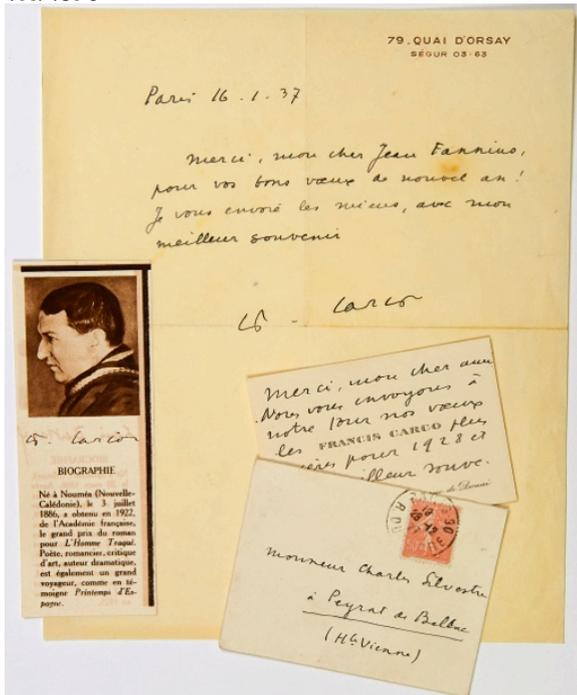 79. QUAI D'ORSAY
SÉGUR 03-63
Paris 16.1.37
Merci, mon cher Jean Fannius,
pour vos bons vœux de nouvel an!
Je vous envoie les miens, avec mon
meilleur souvenir
Carco
Carco
BIOGRAPHIE
Né à Nouméa (Nouvelle-
Calédonie), le 3 juillet
1886, a obtenu en 1922,
de l'Académie française,
le grand prix du roman
pour L'Homme Traqué.
Poète, romancier, critique
d'art, auteur dramatique,
est également un grand
voyageur, comme en té-
moigne Printemps d'Es-
pagne.
Merci, mon cher ami
Nous vous envoyons à
notre tour nos vœux
les plus
FRANCIS CARCO
pour 1928 et
de Douai
Monsieur Charles Silvestre
à Peyrat de Bellac
(Hte Vienne)